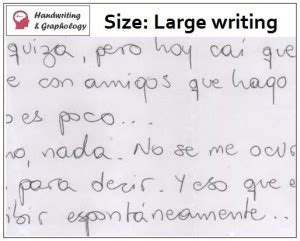 Handwriting
& Graphology
Size: Large writing
quiza, pero hoy caí que
e con amigos que hago
o es poco...
no, nada. No se me ocur
para decir. Y eso que e
ibir espontáneamente...